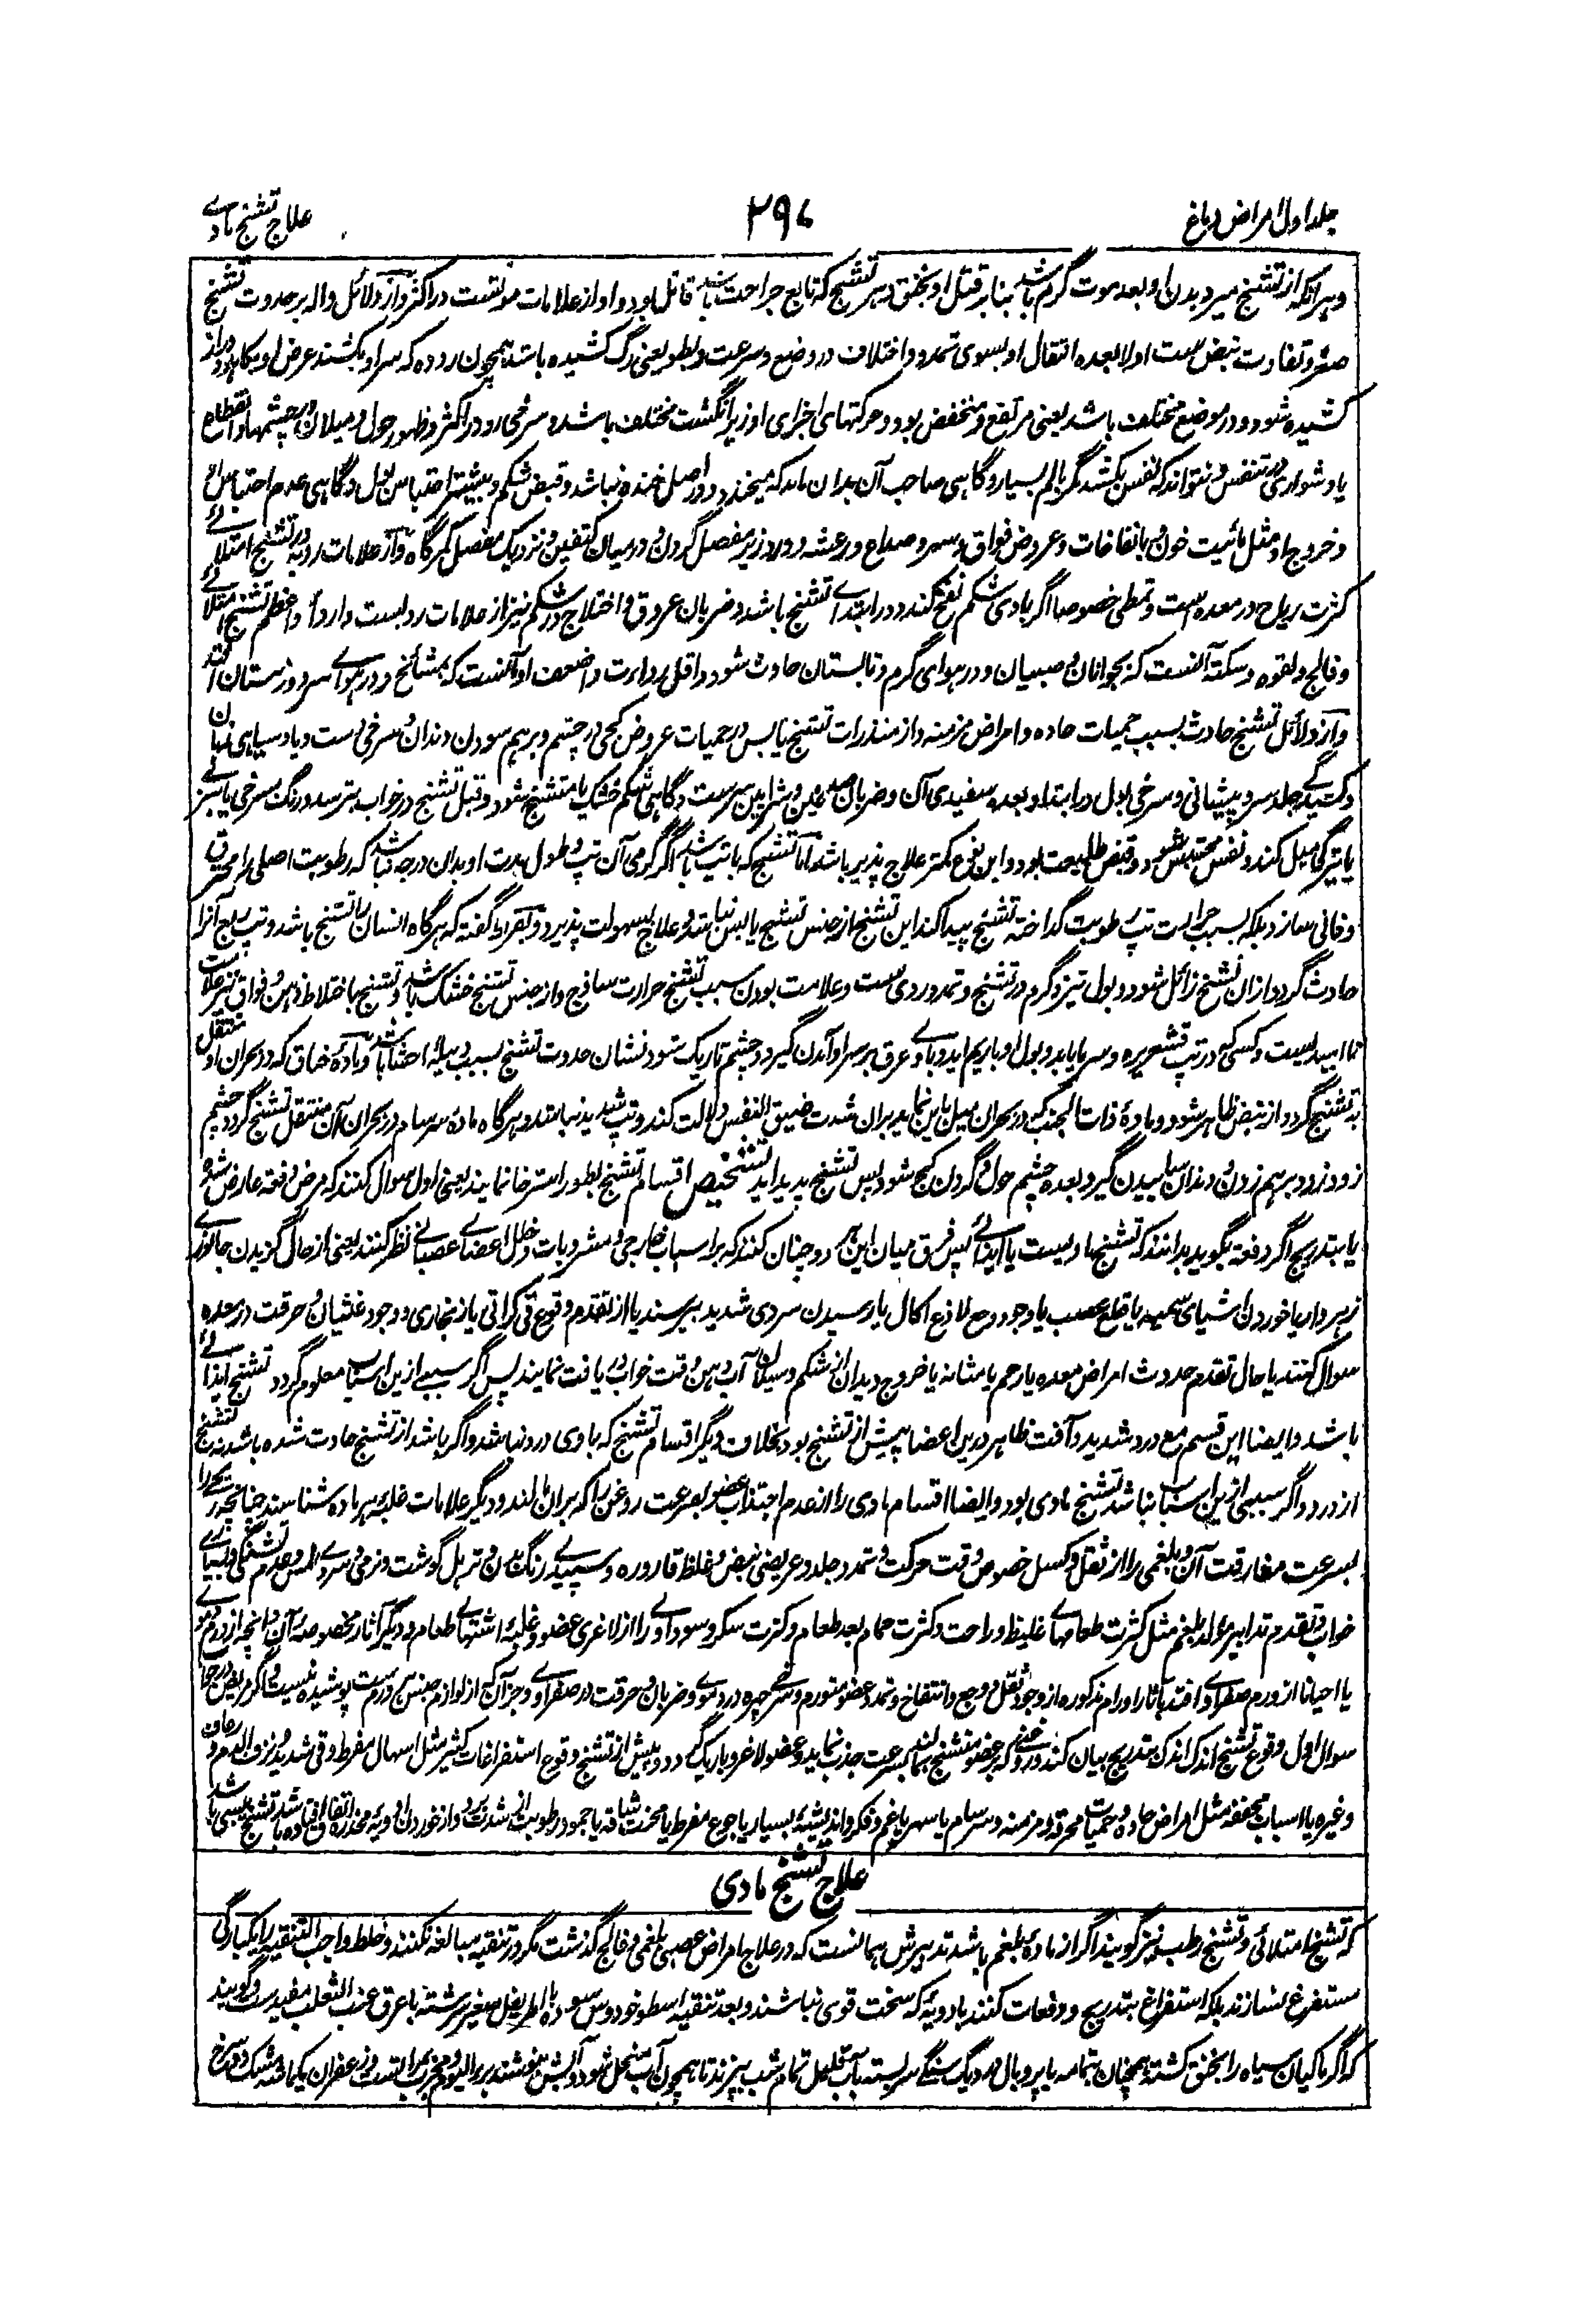 جلد اول امراض دماغ
۲۹۶
علاج تشنج مادے
وہر آنکہ از تشنج میرد بدن او بعد موت گرم باشد بنا بر قتل او بخنق وہر تشنج کہ تابع جراحت باشد قاتل بود و او از علامات موتست در اکثر و از دلائل دالہ بر حدوث تشنج
صغر و تفاوت نبض ست اولا بعدہ انتقال او بسوی تمدد و اختلاف در وضع و سرعت و بطو یعنی رگ کشیدہ باشد ہمچون رودہ کہ سر او بکشند عرض او بکاہد و دراز
کشیدہ شود و در موضع مختلف باشد یعنی مرتفع و منخفض بود و حرکتہای اجزای او زیر انگشت مختلف باشد و سرخی رو در اکثر و ظہور حول و میلان در چشمہا و انقطاع
یا دشواری در تنفس و نتواند کہ نفس بکشد مگر بالم بسیار و گاہی صاحب آن بدان ماند کہ میخندد و در اصل خندہ نباشد و قبض شکم و بیشتر احتباس بول و گاہی عدم احتباس او
و خروج او مثل مائیت خون و بانفاخات و عروض فواق و سہر و صداع و رعشہ و درد زیر مفصل گردن و درمیان کتفین و نزدیک مفصل کمرگاہ و از علامات ردیہ در تشنج امتلائے
کثرت ریاح در معدہ ست و تمطی خصوصا اگر بادی شکم نفخ کند و در ابتدائے تشنج باشد و ضربان عروق و اختلاج در شکم نیز از علامات ردیست و اردأ و اعظم تشنج امتلائے
و فالج و لقوہ و سکتہ آنست کہ بجوانان و صبیان و در ہوای گرم و تابستان حادث شود و اقل رداءت و اضعف او آنست کہ بمشائخ و در ہوائے سرد و زمستان افتد
و از دلائل تشنج حادث بسبب حمیات حادہ و امراض مزمنہ و از منذرات تشنج یابس در حمیات عروض کجی در چشم و برہم سودن دندان و سرخی ست و یا سیاہی زبان
و کشیدگے جلد سر و پیشانی و سرخی بول در ابتدا و بعدہ سفیدی آن و ضربان صدغین و شرائین سرست و گاہی شکم خشک یا متشنج شود و قبل تشنج در خواب بترسد و رنگ بسرخی یا سبزے
یا تیرگی میل کند و نفس محتبس شود و قبض طبیعت بود و این نوع کمتر علاج پذیر باشد اما تشنج کہ با تپ باشد اگر گرمی آن تپ و طول مدت او بدان درجہ نباشد کہ رطوبت اصلی را محترق
و فانی سازد بلکہ بسبب حرارت تپ رطوبت گداختہ تشنج پیدا کند این تشنج از جنس تشنج یابس نباشد و علاج بسہولت پذیرد و بقراط گفتہ کہ ہرگاہ انسان را تشنج باشد و تپ ربع آنرا
حادث گردد از ان تشنج زائل شود و بول تیز و گرم در تشنج و تمدد ردی ست و علامت بودن سبب تشنج حرارت ساذج و از جنس تشنج خشک باشد و تشنج با اختلاط ذہن و فواق نیز علامت
ناامیدیست و کسی کہ در تپ قشعریرہ و سرما یابد و بول او با ریم آید و باوے عرق بر سر او آمدن گیرد و چشم تاریک شود نشان حدوث تشنج بسبب دبیلہ احشا باشد و مادۂ خناق کہ در بحران او منتقل
بہ تشنج گردد از نبض ظاہر شود و مادۂ ذات الجنب کہ در بحران میل باین نماید بران شدت ضیق النفس دلالت کند و تپ شدید نباشد و ہرگاہ مادۂ سرسام در بحران آن منتقل بتشنج گردد چشم
زود زود برہم زدن و دندان سائیدن گیرد و بعدہ چشم حول و گردن کج شود پس تشنج پدید آید تشخیص اقسام تشنج بطور استرخا نمایند یعنی اول سوال کنند کہ مرض دفعۃ عارض شدہ
یا بتدریج اگر دفعۃ بگوید بدانند کہ تشنج مادیست یا ایذائے پس فرق میان این ہر دو چنان کنند کہ بر اسباب خارجی و مشروبات و خلل اعضائے عصبانی نظر کنند یعنی از حال گزیدن جانورے
زہردار یا خوردن اشیای سمیہ یا قطع عصب یا وجود وجع لاذع اکال یا رسیدن سردی شدید بپرسند یا از تقدم وقوع قی کراثی یا زنجاری و وجود غثیان و حرقت در معدہ
سوال کنند یا حال تقدم حدوث امراض معدہ یا رحم یا مثانہ یا خروج دیدان از شکم و سیلان آب دہن وقت خواب دریافت نمایند پس اگر سببے ازین اسباب معلوم گردد تشنج ایذائے
باشد و ایضا این قسم مع درد شدید و آفت ظاہر درین اعضا پیش از تشنج بود بخلاف دیگر اقسام تشنج کہ باوی درد نباشد و اگر باشد از تشنج حادث شدہ باشد نہ تشنج
از درد و اگر سببے ازین اسباب نباشد تشنج مادی بود و ایضا اقسام مادی را از عدم اجتذاب عضو بسرعت روغن را کہ بران مالند و دیگر علامات غلبۂ ہر مادہ شناسند چنانچہ ریحے را
بسرعت مفارقت آن و بلغمی را از ثقل و کسل خصوص وقت حرکت و تمدد جلد و عریضی نبض و غلظ قارورہ و سپیدے رنگ بدن و ترہل گوشت و نرمی و سردے لمس و عدم تشنگی و بسیارے
خواب و تقدم تدابیر مولد بلغم مثل کثرت طعامہائے غلیظ و راحت و کثرت حمام بعد طعام و کثرت سکر و سوداوے را از لاغری عضو و غلبۂ اشتہائے طعام و دیگر آثار مخصوصہ آن و آنچہ از ورم دموے
یا احیانا از ورم صفراوے افتد بآثار اورام مذکورہ از وجود ثقل و وجع و انتفاخ و تمدد عضو متورم و سرخے چہرہ در دموے و ضربان و حرقت در صفراوے و جز آن کہ از لوازم جنس ورم ست پوشیدہ نیست و اگر مریض در جواب
سوال اول وقوع تشنج اندک اندک بتدریج بیان کند و روغنے کہ بر عضو متشنج بمالند بسرعت جذب نماید و عضو لاغر و باریک گردد و پیش از تشنج وقوع استفراغات کثیر مثل اسہال مفرط و قی شدید و نزف الدم و رعاف
و غیرہ یا اسباب مجففہ مثل امراض حادہ و حمیات محرقہ و مزمنہ و سرسام یا سہر یا غم و فکر و اندیشۂ بسیار یا جوع مفرط یا محنت شاقہ یا جمود رطوبت از شدت برد و از خوردن ادویہ مخدرہ اتفاق افتادہ باشد تشنج یبسی باشد
علاج تشنج مادی
کہ تشنج امتلائی و تشنج رطب نیز گویند اگر از مادۂ بلغم باشد تدبیرش ہمانست کہ در علاج امراض عصبی بلغمی و فالج گذشت مگر در تنقیہ مبالغہ نکنند و خلط واجب التنقیہ را یکبارگی
مستفرغ نسازند بلکہ استفراغ بتدریج و دفعات کنند بادویۂ کہ سخت قوی نباشند و بعد تنقیہ اسطوخودوس سودہ باطریفل صغیر سرشتہ با عرق عنب الثعلب مفیدست و گویند
کہ اگر ماکیان سیاہ را بخنق کشتہ ہمچنان بتمامہ با پر و بال در دیگ سنگے سربستہ بآب قلیل تمام شب بپزند تا ہمچون آب منحل شود و آبش بنوشند